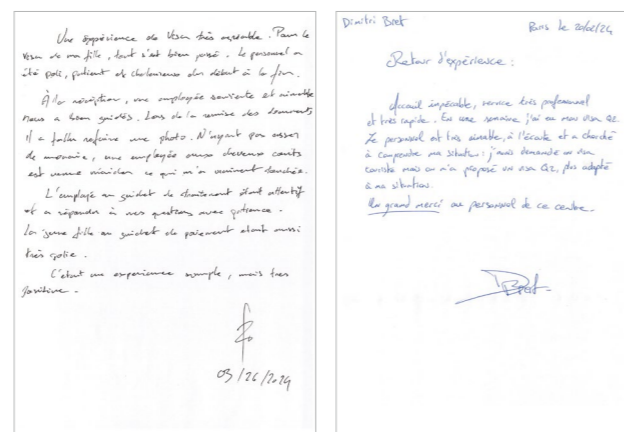 Une expérience de Visa très agréable. Pour le
visa de ma fille, tout s'est bien passé. Le personnel a
été poli, patient et chaleureux du début à la fin.
À la réception, une employée souriente et aimable
nous a bien guidés. Lors de la remise des documents
il a fallu refaire une photo. N'ayant pas assez
de monnaie, une employée aux cheveux courts
est venue m'aider ce qui m'a vraiment touchée.
L'employé au guichet de traitement était attentif
et a répondu à nos questions avec patience.
La jeune fille au guichet de paiement etait aussi
très polie.
C'était une experience simple, mais tres
positive.
03/26/2024
Dimitri Bret
Paris le 20/02/24
Retour d'expérience :
Accueil impécable, service très professionnel
et très rapide. En une semaine j'ai eu mon visa Q2.
Le personnel est très aimable, à l'écoute et a cherché
à comprendre ma situation : j'avais demandé un visa
touriste mais on m'a proposé un visa Q2, plus adapté
à ma situation.
Un grand merci au personnel de ce centre.
Bret